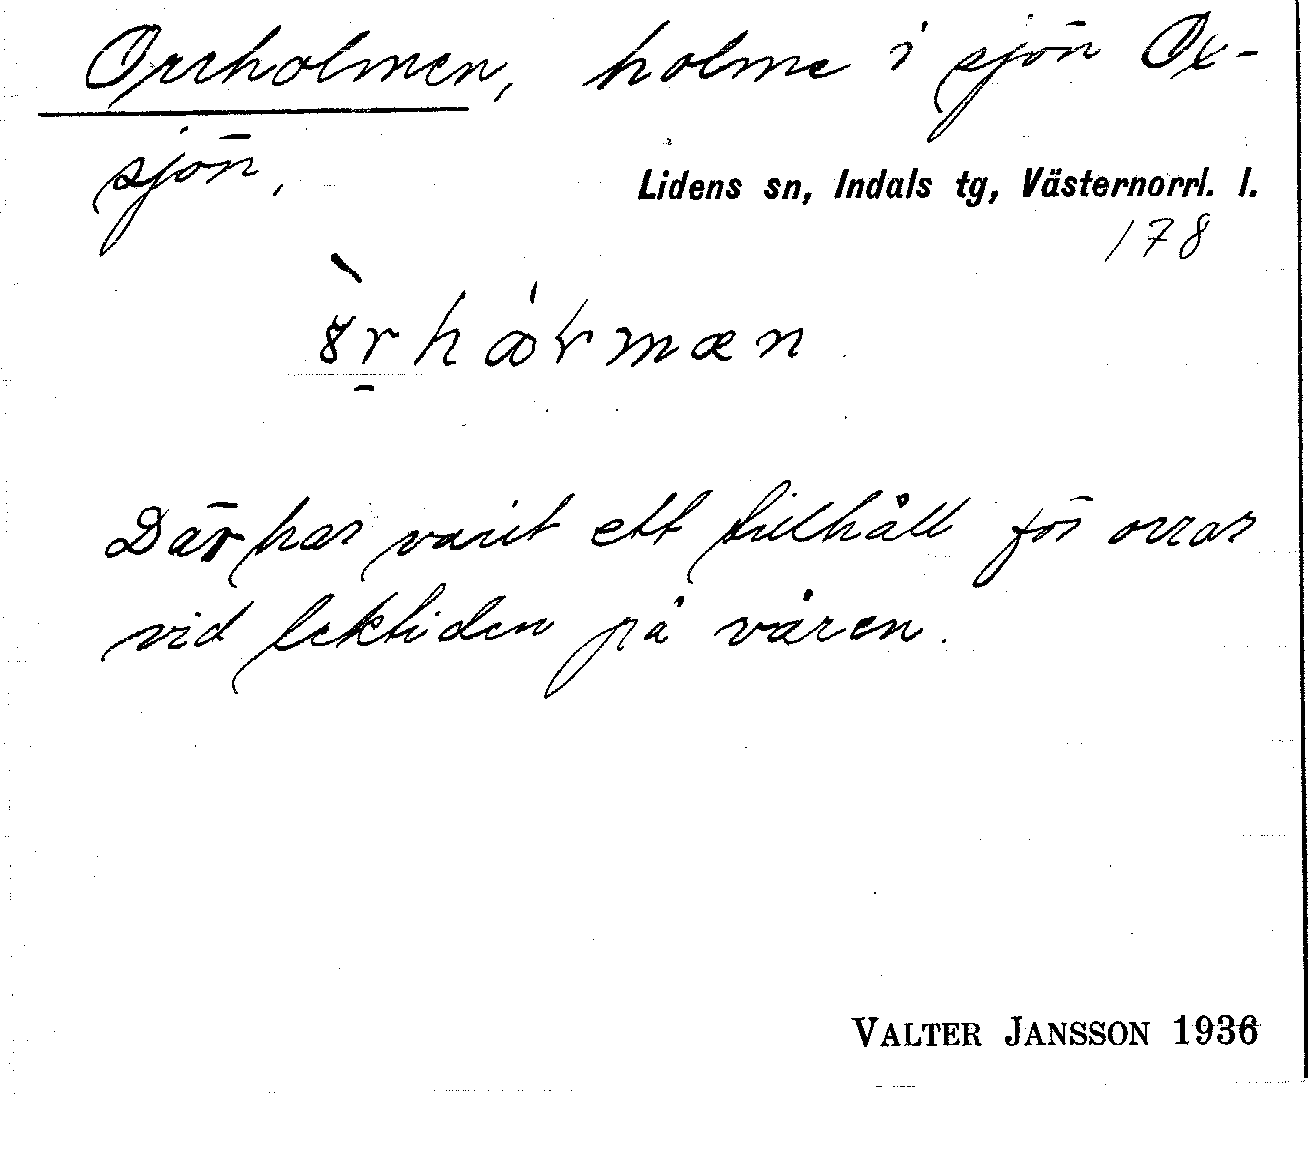 Orrholmen, holme i sjön Ox-
sjön,
Lidens sn, Indals tg, Västernorrl. l.
178
Där har varit ett tillhåll för orrar
vid lektiden på våren.
VALTER JANSSON 1936